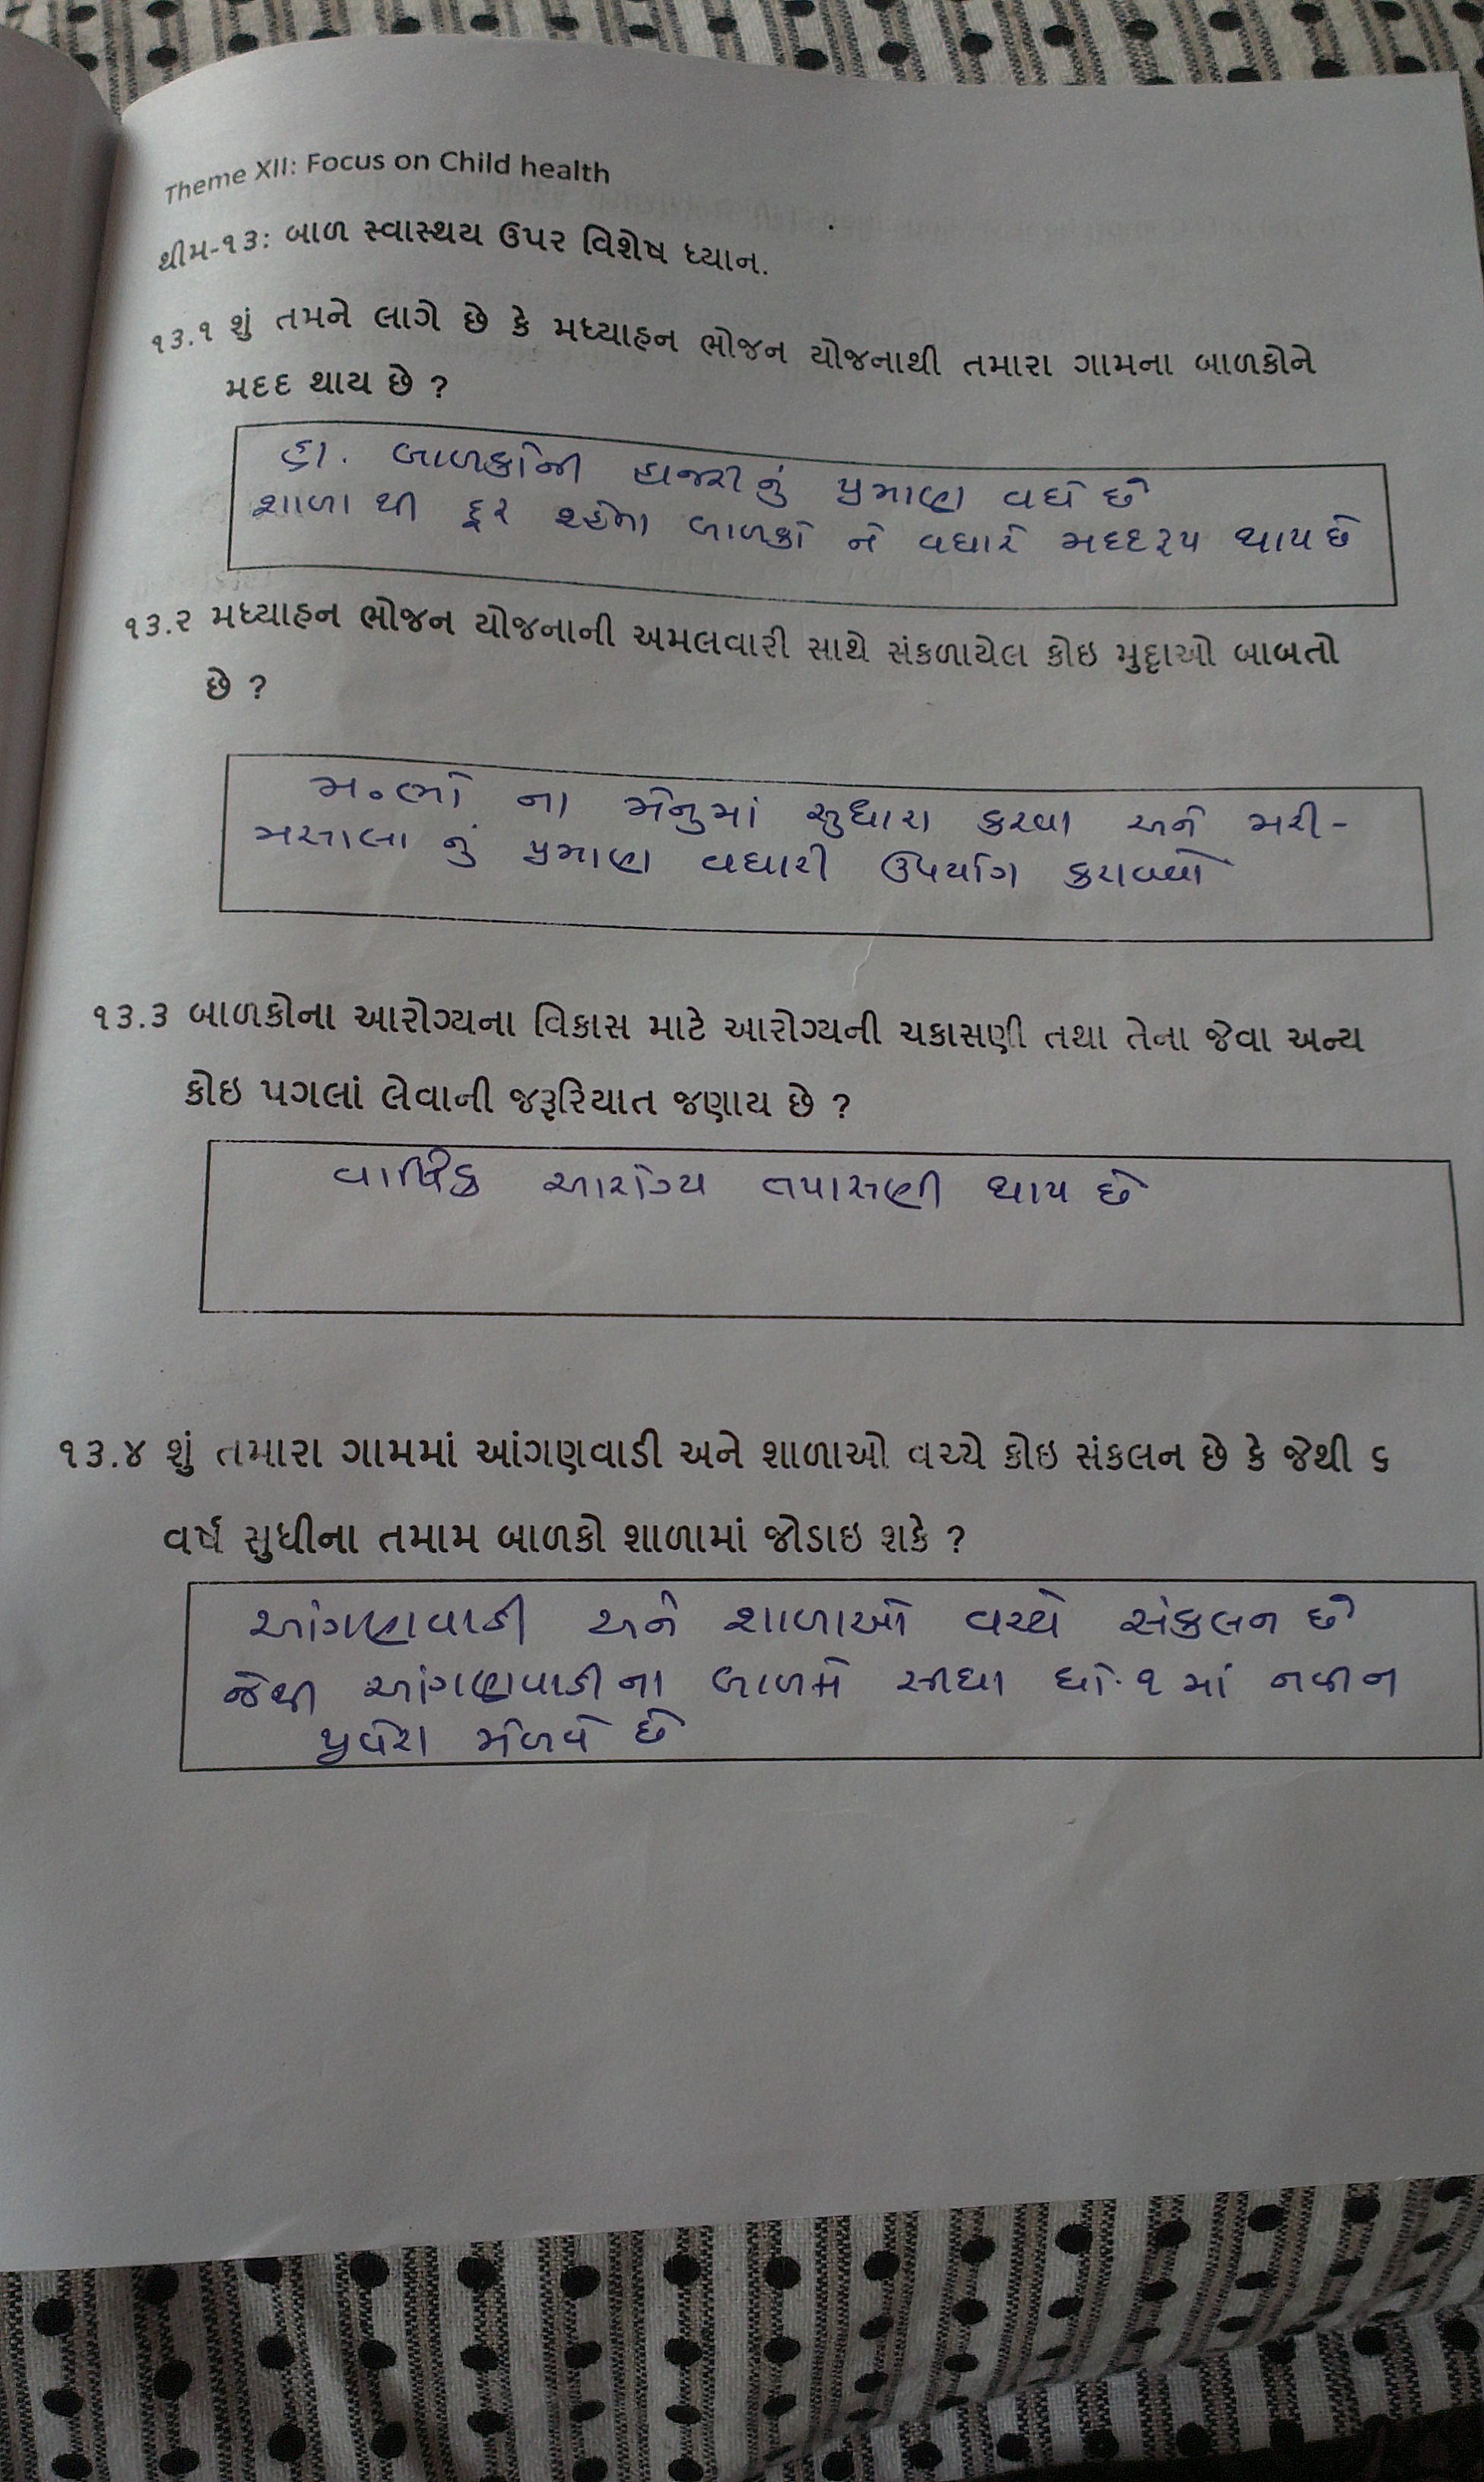 Theme XII: Focus on Child health
થીમ-૧૩: બાળ સ્વાસ્થય ઉપર વિશેષ ધ્યાન.
૧૩.૧ શું તમને લાગે છે કે મધ્યાહન ભોજન યોજનાથી તમારા ગામના બાળકોને
મદદ થાય છે ?
હા. બાળકોની હાજરીનું પ્રમાણ વધે છે
શાળા થી દૂર રહેતા બાળકો ને વધારે મદદરૂપ થાય છે
૧૩.૨ મધ્યાહન ભોજન યોજનાની અમલવારી સાથે સંકળાયેલ કોઇ મુદ્દાઓ બાબતો
છે ?
મ.ભો ના મેનુમાં સુધારા કરવા અને મરી-
મસાલા નું પ્રમાણ વધારી ઉપયોગ કરાવવો
૧૩.૩ બાળકોના આરોગ્યના વિકાસ માટે આરોગ્યની ચકાસણી તથા તેના જેવા અન્ય
કોઇ પગલાં લેવાની જરૂરિયાત જણાય છે ?
વાર્ષિક આરોગ્ય તપાસણી થાય છે
૧૩.૪ શું તમારા ગામમાં આંગણવાડી અને શાળાઓ વચ્ચે કોઇ સંકલન છે કે જેથી ૬
વર્ષ સુધીના તમામ બાળકો શાળામાં જોડાઇ શકે ?
આંગણવાડી અને શાળાઓ વચ્ચે સંકલન છે
જેથી આંગણવાડીના બાળકો સીધા ધો.૧ માં નવીન
પ્રવેશ મેળવે છે